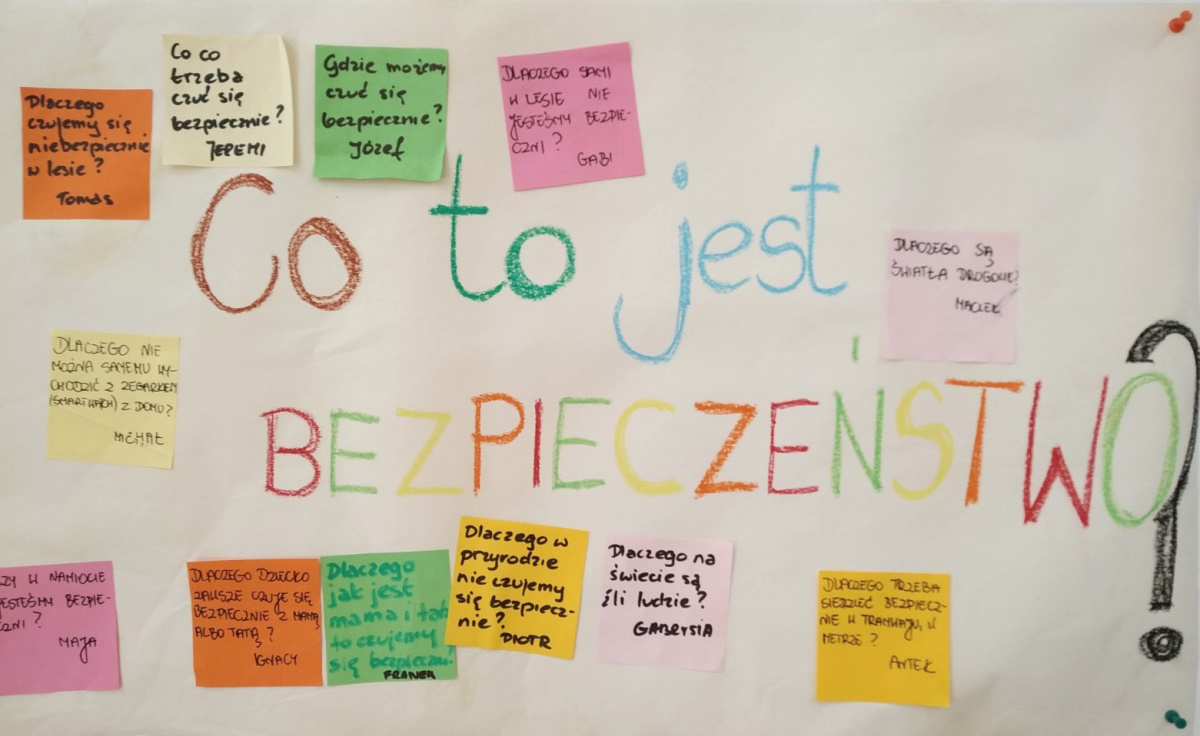 Dlaczego
czujemy się
niebezpiecznie
w lesie?
Tomas
Co co
trzeba
czuć się
bezpiecznie?
JEREMI
Gdzie możemy
czuć się
bezpiecznie?
Józef
DLACZEGO SAMI
W LESIE NIE
JESTEŚMY BEZPIE-
CZNI?
GABI
Co to jest
BEZPIECZEŃSTWO?
DLACZEGO SĄ
ŚWIATŁA DROGOWE?
MACIEK
DLACZEGO NIE
MOŻNA SAMEMU WY-
CHODZIĆ Z ZEGARKIEM
(SMARTWATCH) Z DOMU?
MICHAŁ
ZY W NAMIOCIE
JESTEŚMY BEZPIE-
CZNI?
MAJA
DLACZEGO DZIECKO
ZAWSZE CZUJE SIĘ
BEZPIECZNIE Z MAMĄ
ALBO TATĄ?
IGNACY
Dlaczego
jak jest
mama i tata
to czujemy
się bezpieczni-
FRANEK
Dlaczego w
przyrodzie
nie czujemy
się bezpiecz-
nie?
PIOTR
Dlaczego na
świecie są
źli ludzie?
GABRYSIA
DLACZEGO TRZEBA
SIEDZIEĆ BEZPIECZ-
NIE W TRAMWAJU, W
METRZE?
ANTEK